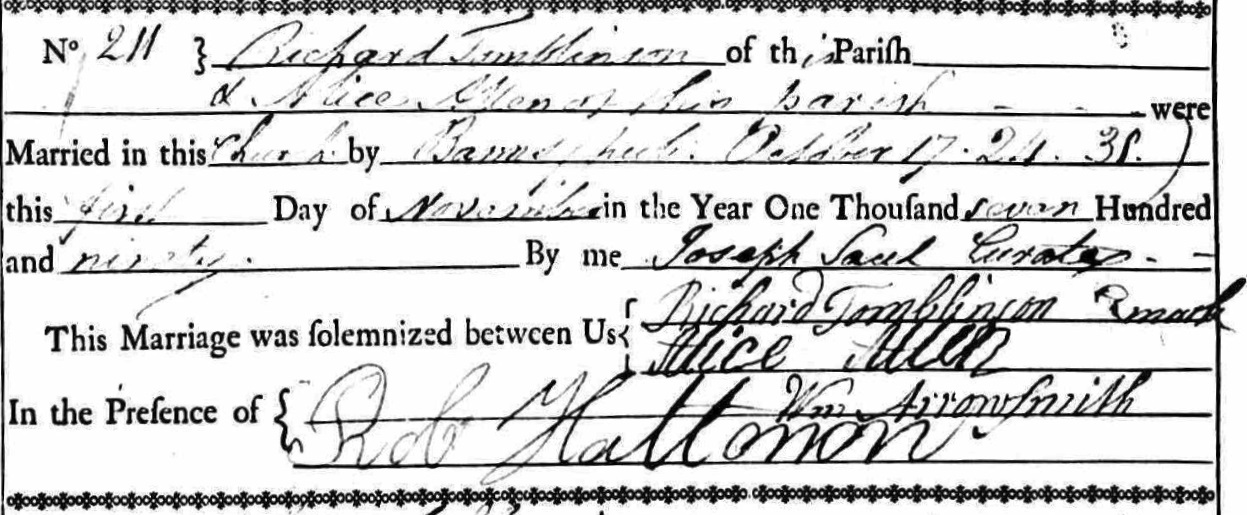 No 211 } Richard Tomblinson of this Pariſh
& Alice Allen of this parish - - - were
Married in this Church by Banns October 17. 24. 31.
this first Day of November in the Year One Thouſand seven Hundred
and ninety. By me Joseph Saul Curate - -
This Marriage was ſolemnized between Us { Richard Tomblinson mark
Alice Allen
In the Preſence of { Wm Arrowsmith
Rob Hattonon